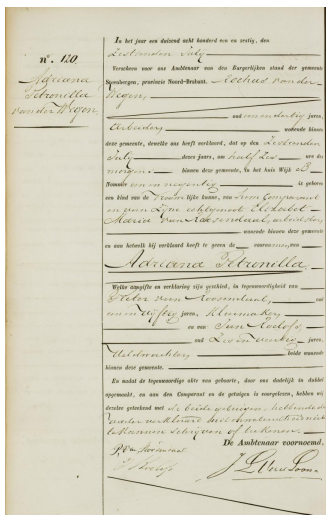 n°. 120
Adriana
Petronilla
van der Wegen
In het jaar een duizend acht honderd een en zestig, den
Zestienden July
Verscheen voor ons Ambtenaar van den Burgerlijken stand der gemeente
Steenbergen, provincie Noord-Brabant. Rochus van der
Wegen,
oud een en dertig jaren,
Arbeider, wonende binnen
deze gemeente, dewelke ons heeft verklaard, dat op den Zestienden
July dezes jaars, om half zes ure des
morgens binnen deze gemeente, in het huis Wijk B
Nommer een en negentig is geboren
een kind van de Vrouwelijke kunne, van hem Comparant
en van zijne echtgenoote Elisabet
Maria van Roosendaal, arbeidster,
wonende binnen deze gemeente
en aan hetwelk hij verklaard heeft te geven de voornamen, van
Adriana Petronilla.
Welke aangifte en verklaring zijn geschied, in tegenwoordigheid van
Pieter van Roosendaal, oud
een en vijftig jaren, Klermaker,
en van Jan Rodofs,
oud Zes en veertig jaren,
Veldwachter, beide wonende
binnen deze gemeente.
En is van deze tegenwoordige akte van geboorte, door ons dadelijk in dubbel
opgemaakt, en aan den Comparant en de getuigen is voorgelezen, hebben wij
dezelve geteekend met de beide getuigen, hebbende de
vader verklaard
te kunnen schrijven of teekenen.
De Ambtenaar voornoemd,
P. van Roosendaal
J. Rodofs